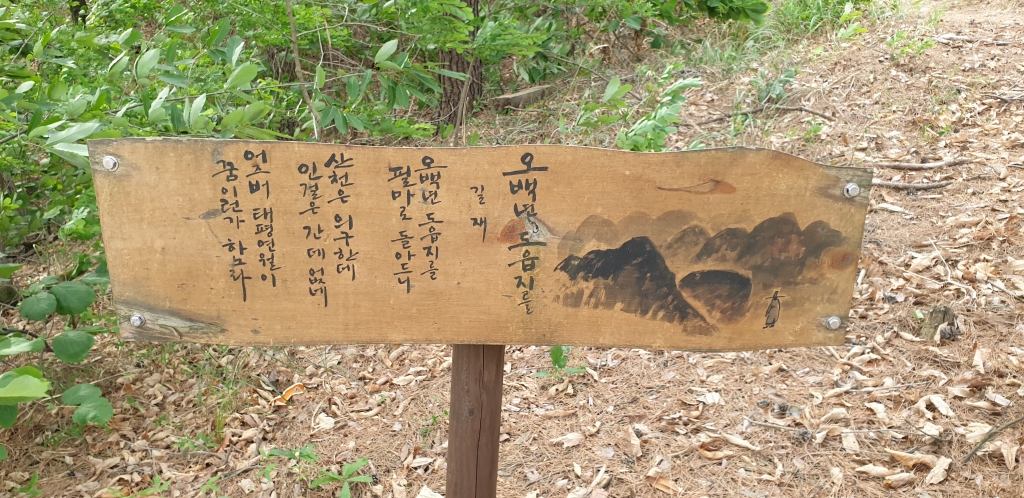 오백년 도읍지를
길재
오백년 도읍지를
필마로 돌아드니
산천은 의구한데
인걸은 간데 없네
어즈버 태평연월이
꿈이런가 하노라